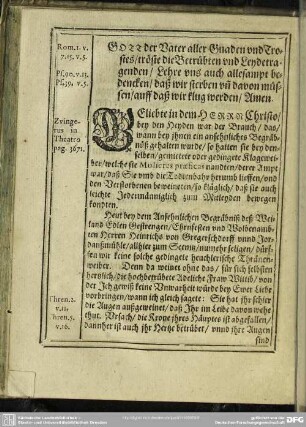 Rom.1. v.
7.15. v.5.
Ps.90. v.13.
Ps.39. v.5.
GOTT der Vater aller Gnaden vnd Tro-
stes/ tröste die Betrübten vnd Leydetra-
genden/ Lehre vns auch allesampt be-
dencken/ daß wir sterben vñ davon müs-
sen/ auff daß wir klug werden/ Amen.
Zvinge-
rus in
Theatro
pag. 3671.
GEliebte in dem HERRN Christo/
bey den Heyden war der Brauch/ das/
wann bey ihnen ein ansehnliches Begräb-
nüß gehalten wurde/ so hatten sie bey den-
selben/ gemittete oder gedingete Klagewei-
ber/ welche sie Mulieres præficas nandten/ derer Ampt
war/ daß Sie vmb die Todtenbahr herumb lieffen/ vnd
den Verstorbenen beweineten/ so kläglich/ daß sie auch
leichte Jedermänniglich zum Mitleyden bewegen
kondten.
Heut bey dem Ansehnlichen Begräbnüß deß Wei-
land Edlen Gestrengen/ Ehrenfesten vnd Wolbenamb-
ten Herren Heinrichs von Gregerschdorff vnnd Jor-
danßmühle/ allhier zum nunmehr seligen/ dürf-
fen wir keine solche gedingete heuchlerische Thränen-
weiber. Denn da weinet ohne das/ für sich selbsten
hertzlich/ die hochbetrübte Adeliche Fraw Wittib/ von
der Ich gewiß keine Vnwarheit würde bey Ewer Liebe
vorbringen/ wann ich gleich sagete: Sie hat ihr schier
die Augen außgeweinet/ daß Ihr im Leibe davon wehe
thut. Vrsach/ die Krone ihres Häuptes ist abgefallen/
dannher ist auch ihr Hertze betrübet/ vnnd ihre Augen
sind/
Thren.2.
v.11.
Thren.5.
v.16.